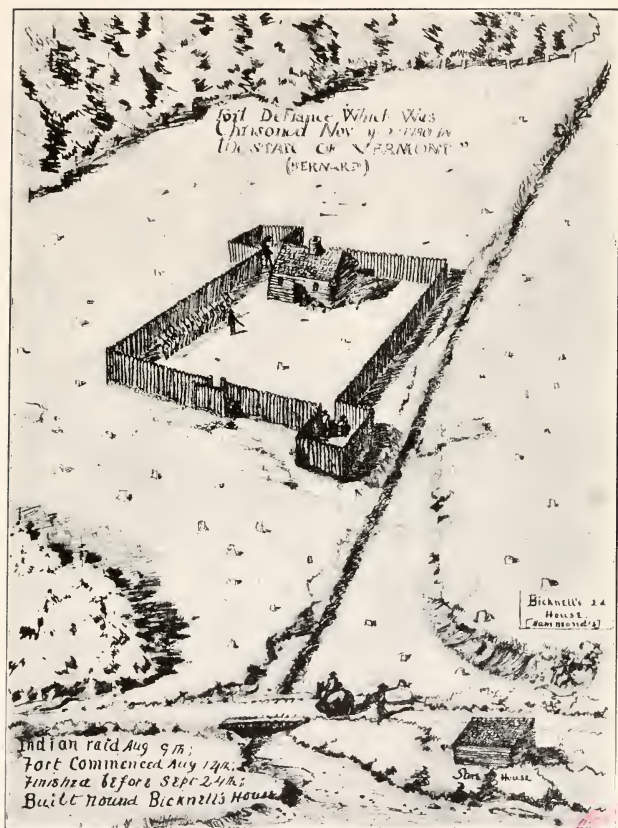 Fort Defiance Which Was
Chrisoned Nov
the STAR OF VERMONT"
(BERNARD)
Bicknell's 2d
House
[Hammond's]
Store House
Indian raid Aug 9th;
Fort Commenced Aug 14th;
Finished before Sept 24th;
Built round Bicknell's House